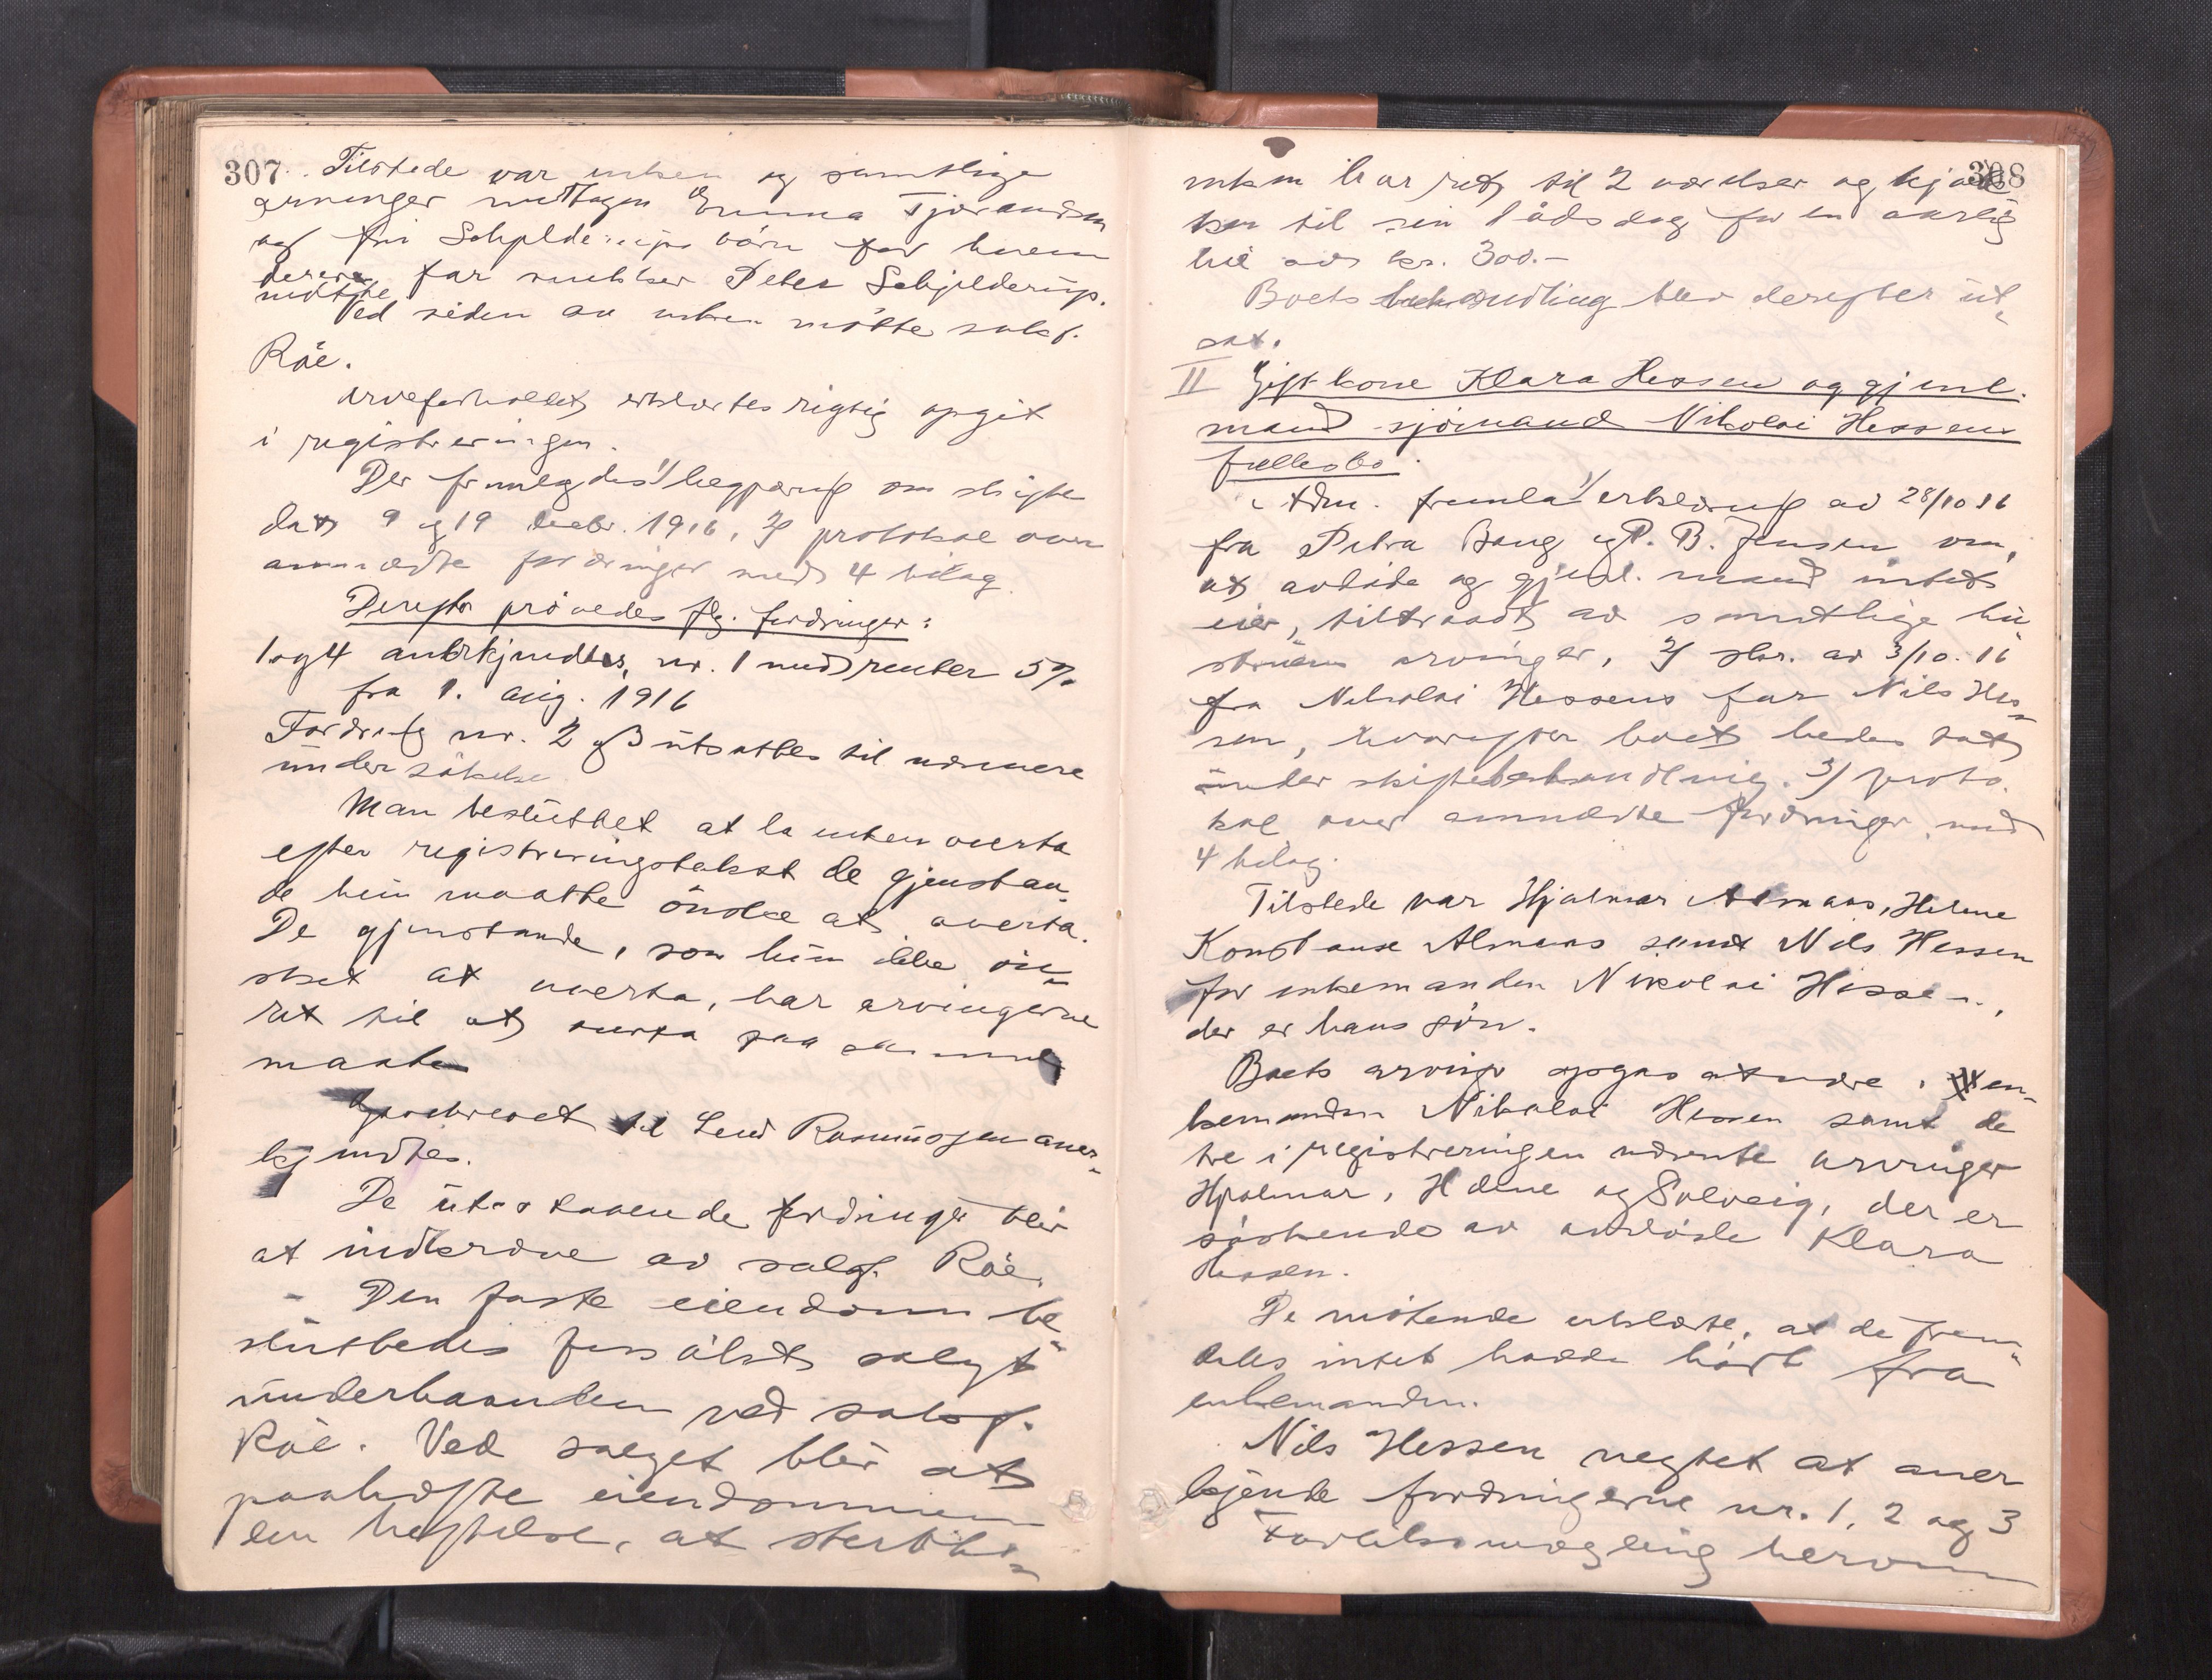 307. Tilstede var enken og samtlige
arvinger undtagen Emma Tjørandsen
og fru Schjelderups børn for hvem
deres far snekker Peter Schjelderup.
møtte
Ved siden av enken møtte sakf.
Röe.
Arveforholdet erklærtes rigtig opgit
i registreringen.
Der fremlagdes 1/ begjæring om skifte
dat 9 og 19 decbr. 1916, 2/ protokol over
anmeldte fordringer med 4 bilag.
Derefter prövedes flg. fordringer:
1 og 4 anerkjendtes, nr. 1 med renter 5%
fra 1. aug. 1916
Fordring nr. 2 og 3 utsattes til nærmere
undersökelse
Man besluttet at la enken overta
efter registreringstakst de gjenstan-
de hun maatte önske at overta.
De gjenstande, som hun ikke ön-
sket at overta, har arvingerne
ret til at overta paa samme
maate
Gavebrevet til Rasmussen aner-
kjendtes.
De utestaaende fordringer blir
at indkræve av sakf. Röe.
Den faste eiendom be-
sluttedes forsökt solgt
underhaanden ved sakf.
Röe. Ved salget blir at
paahefte eiendommen
den heftelse, at sterkbo-
308
enken har ret til 2 værelser og kjøk-
ken til sin dødsdag for en aarlig
leie av kr. 300.-
Boets behandling blev derefter ut-
sat.
II Gift kone Klara Hessen og gjenl.
mand sjömand Nikolai Hessens
fællesbo.
Adm. fremla 1/ erklæring av 28/10 16
fra Petra Bang og P. B. Jensen om,
at avdöde og gjenl. mand intet
eier, tiltraadt av samtlige hu-
struens arvinger, 2/ skr. av 3/10. 16
fra Nikolai Hessens far Nils Hes-
sen, hvorefter boet bedes tat
under skiftebehandling. 3/ proto-
kol over anmeldte fordringer, med
4 bilag.
Tilstede var Hjalmar Almaas, Helene
Konstanse Almaas samt Nils Hessen
for enkemanden Nikolai Hessen,
der er hans sön.
Boets arvinger opgas at være: en-
kemanden Nikolai Hessen samt de
tre i registreringen nævnte arvinger
Hjalmar, Helene og Solveig, der er
søskende av avdöde Klara
Hessen.
De mötende erklærte, at de frem-
deles intet hadde hört fra
enkemanden.
Nils Hessen negtet at aner
kjende fordringerne nr. 1, 2 og 3
Forliksmægling herom